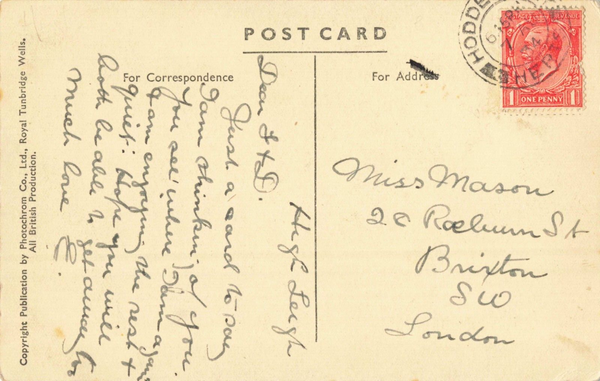 POST CARD
For Correspondence
For Address
HODDE
HER
ONE PENNY
1
1
High Leigh
Dear I & D.
Just a card to say
I am thinkin' of you.
You see where I am again
I am enjoying the rest &
quiet. Hope you will
both be able to get away to
Much love
Miss Mason
Raeburn St
Brixton
SW
London
Copyright Publication by Photochrom Co., Ltd., Royal Tunbridge Wells.
All British Production.